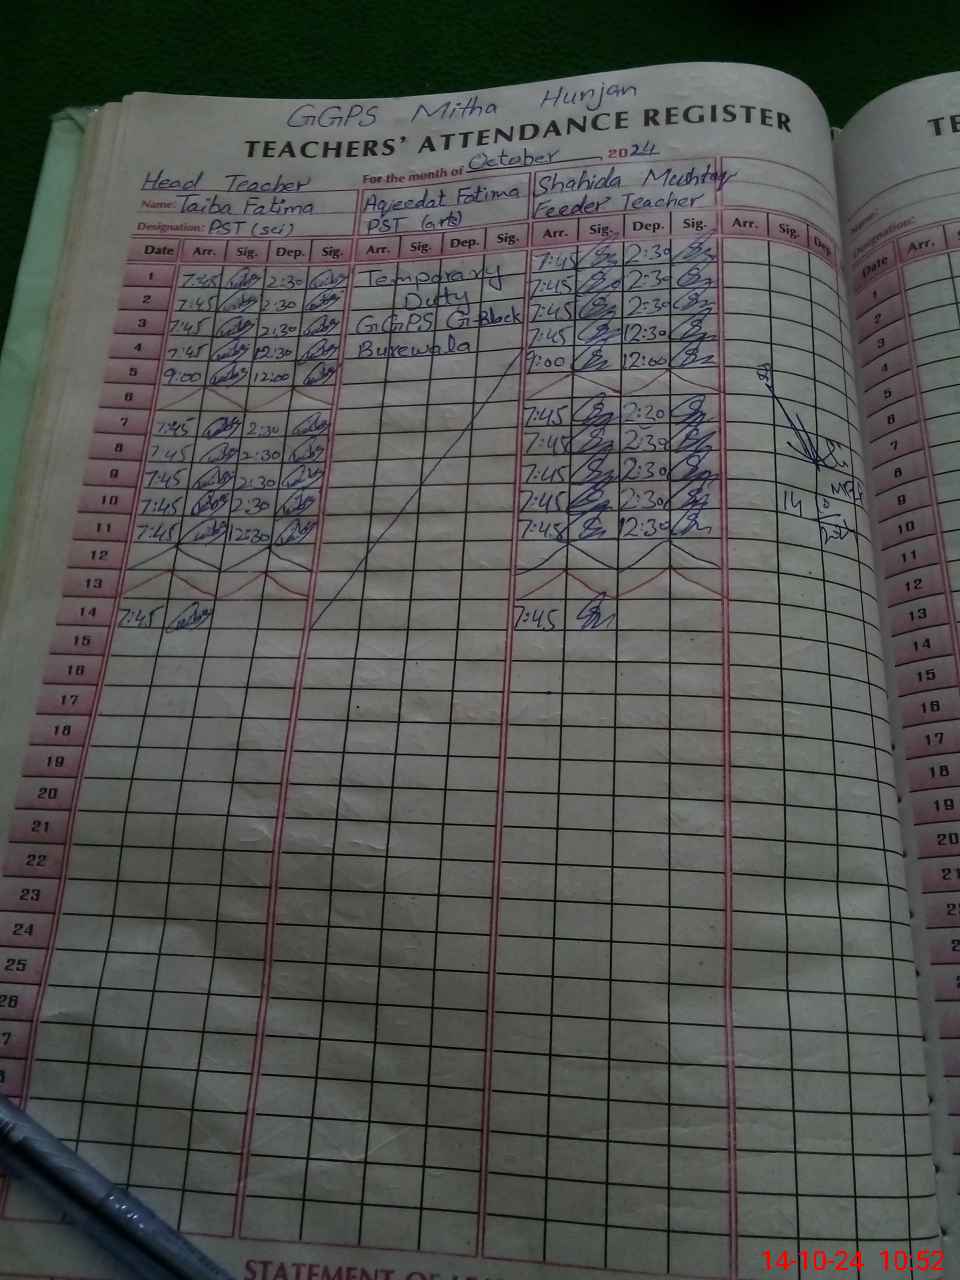 GGPS Mitha Hunjan
TEACHERS' ATTENDANCE REGISTER
For the month of October 2024
Head Teacher
Name: Taiba Fatima Aqeedat Fatima Shahida Mushtaq
Designation: PST (sci) PST (arts) Feeder Teacher
Date Arr. Sig. Dep. Sig. Arr. Sig. Dep. Sig. Arr. Sig. Dep. Sig. Arr. Sig. Dep.
1 7:45 2:30 Temporary 7:45 2:30
2 7:45 2:30 Duty 7:45 2:30
3 7:45 2:30 GGPS G-Block 7:45 2:30
4 7:45 12:30 Burewala 7:45 12:30
5 9:00 12:00 9:00 12:00
6
7 7:45 2:30 7:45 2:30
8 7:45 2:30 7:45 2:30
9 7:45 2:30 7:45 2:30
10 7:45 2:30 7:45 2:30 14
11 7:45 12:30 7:45 12:30
12
13
14 7:45 7:45
15
16
17
18
19
20
21
22
23
24
25
26
7
8
STATEMENT OF
TE
Name:
Designation:
Date Arr. Sig.
1
2
3
4
5
6
7
8
9
10
11
12
13
14
15
16
17
18
19
20
21
2
2
2
14-10-24 10:52